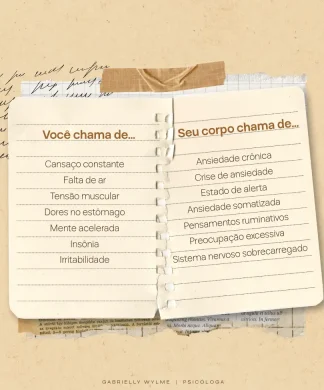 Você chama de...
Cansaço constante
Falta de ar
Tensão muscular
Dores no estômago
Mente acelerada
Insônia
Irritabilidade
Seu corpo chama de...
Ansiedade crônica
Crise de ansiedade
Estado de alerta
Ansiedade somatizada
Pensamentos ruminativos
Preocupação excessiva
Sistema nervoso sobrecarregado
GABRIELLY WYLME | PSICOLOGA